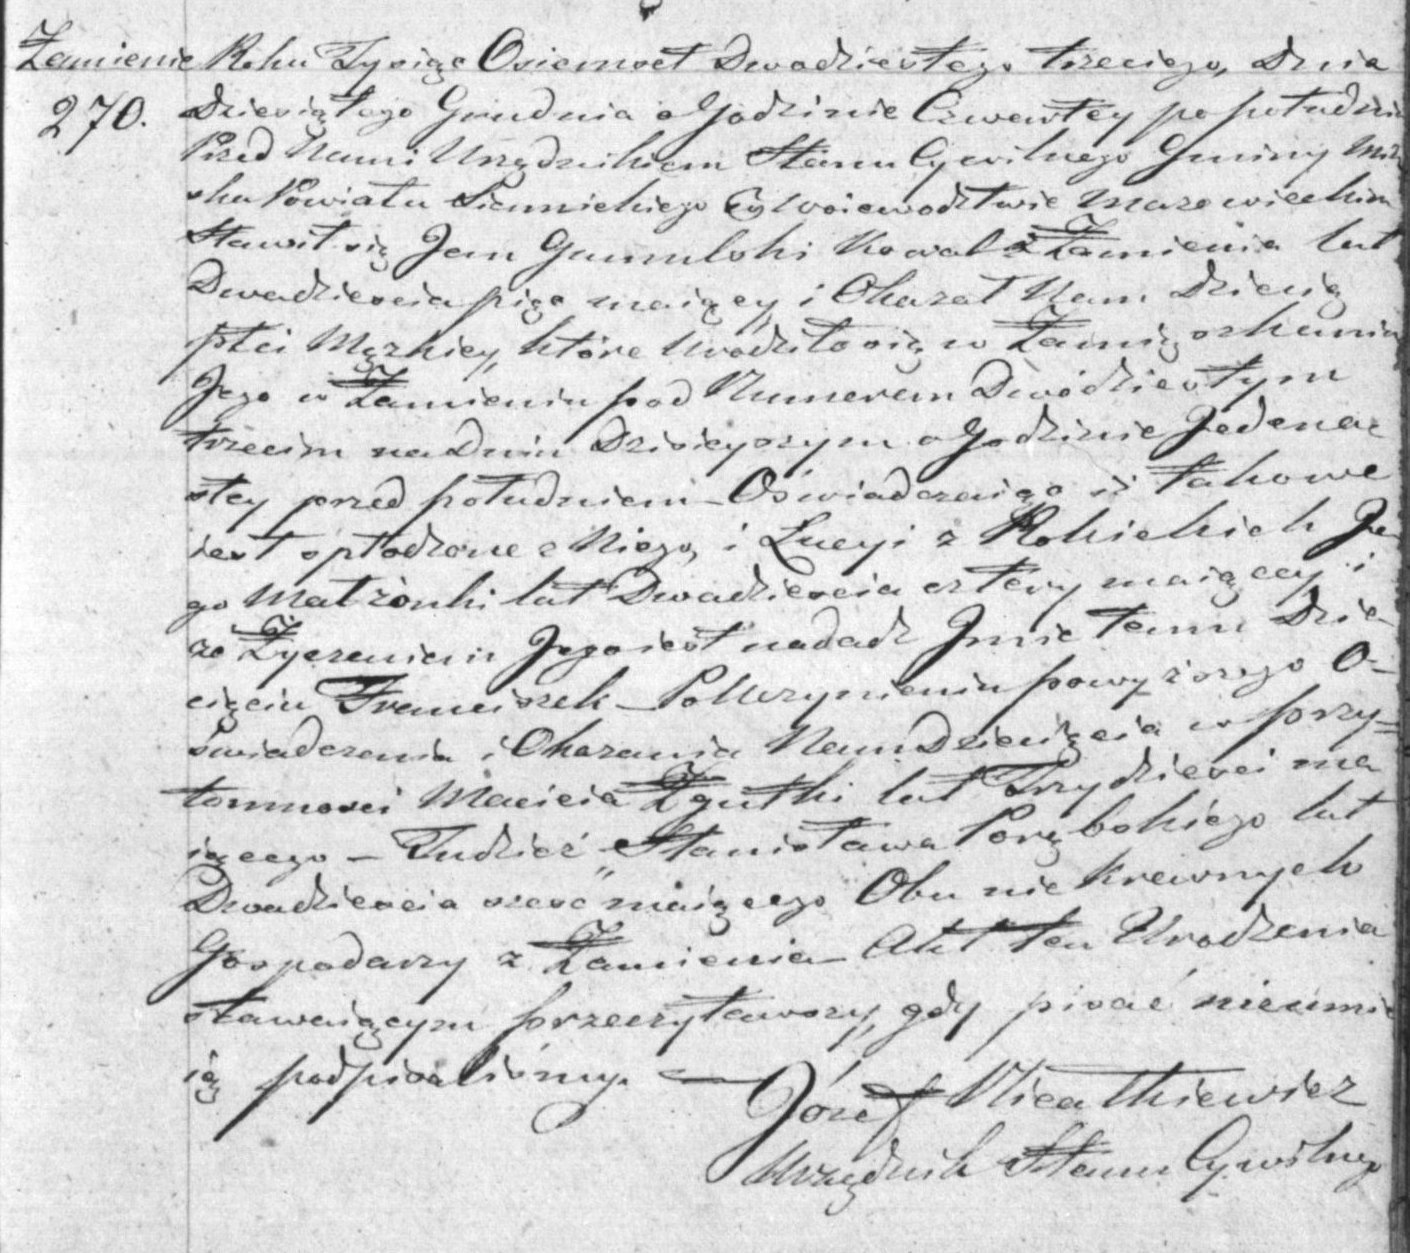 Żamienie
270.
Roku Tysiąc Osiemset Dwadziestego trzeciego, Dnia
Dziesiątego Grudnia o Godzinie Czwartey po południu
Przed Nami Urzędnikiem Stanu Cywilnego Gminy Miń
ska Powiatu Siennickiego Woiewodztwie Mazowieckim
Stawił się Jan Gumulski Kowal z Żamienia lat
Dwadzieścia pięć maiący, i Okazał Nam Dziecię
płci Męzkiey, które Urodziło się w Zamięszkaniu
Jego w Żamieniu pod Numerem Dwódziestym
trzecim na Dniu Dzisieyszym o Godzinie Jedenac
stey przed południem – Oświadczaiąc iż takowe
iest spłodzone z Niego, i Łucyi z Rokickich Je
go Małżonki lat Dwadzieścia cztery maiącey i
że Życzeniem Jego iest nadadz Jmie temu Dzie
cięciu Franciszek – Po Uczynieniu powyższego O=
świadczenia i Okazania Nam Dziecięcia w przy=
tomności Macieia Zgutki lat Trzydzieści ma
iącego – Tudzież Stanisława Porębskiego lat
Dwadzieścia sześć maiącego Obu nie Krewnych
Gospodarzy z Żamienia – Akt ten Urodzenia
stawaiącym przeczytawszy, gdy pisać nieumie
ią podpisaliśmy. —
Józef
Urzędnik Stanu Cywilnego